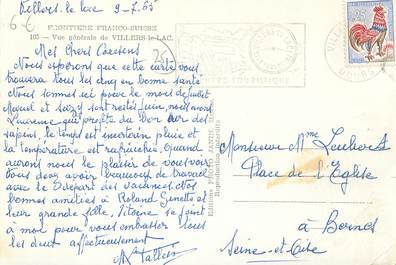 Villers le lac 9-7-65
6€
FRONTIERE FRANCO-SUISSE
103 - Vue générale de VILLERS-le-LAC.
25
Mes Chers Cousins
Nous espérons que cette carte vous
trouvera tous les cinq en bonne santé
Nous sommes ici pour le mois de juillet
Marcel et Suzy sont restés juin, nous avons
Laurence qui profite du bon air des
sapins, le temps est incertain pluie et
la température est rafraichie. Quand
aurons nous le plaisir de vous voir
vous devez avoir beaucoup de travail
avec le départ des vacances. Nos
bonnes amitiés à Roland Ginette et
leur grande fille. Titaine se joint
à moi pour vous embrasser tous
les deux affectueusement
Editions PHOTO
Reproduction
VILLERS
DOUBS
Monsieur Mme
Place de l'Eglise
à
Seine-et-Oise